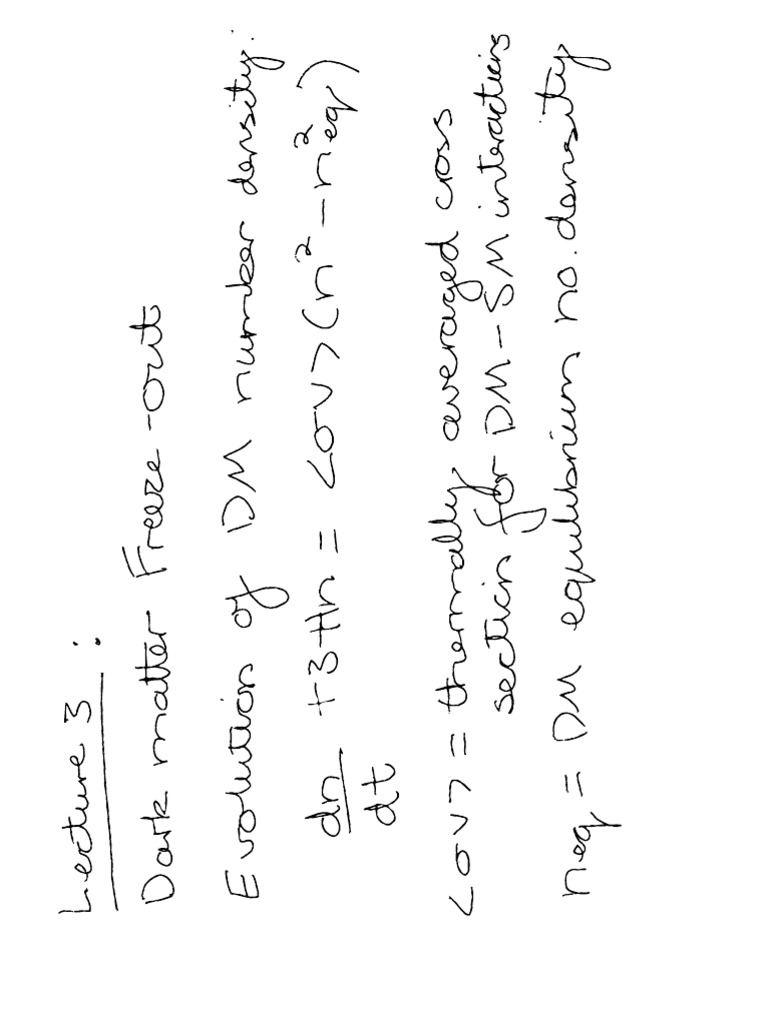 Lecture 3 :
Dark matter Freeze-out
Evolution of DM number density:
dn/dt + 3Hn = <σv> (n² - n²eq)
<σv> = thermally averaged cross
section for DM-SM interactions
neq = DM equilibrium no. density